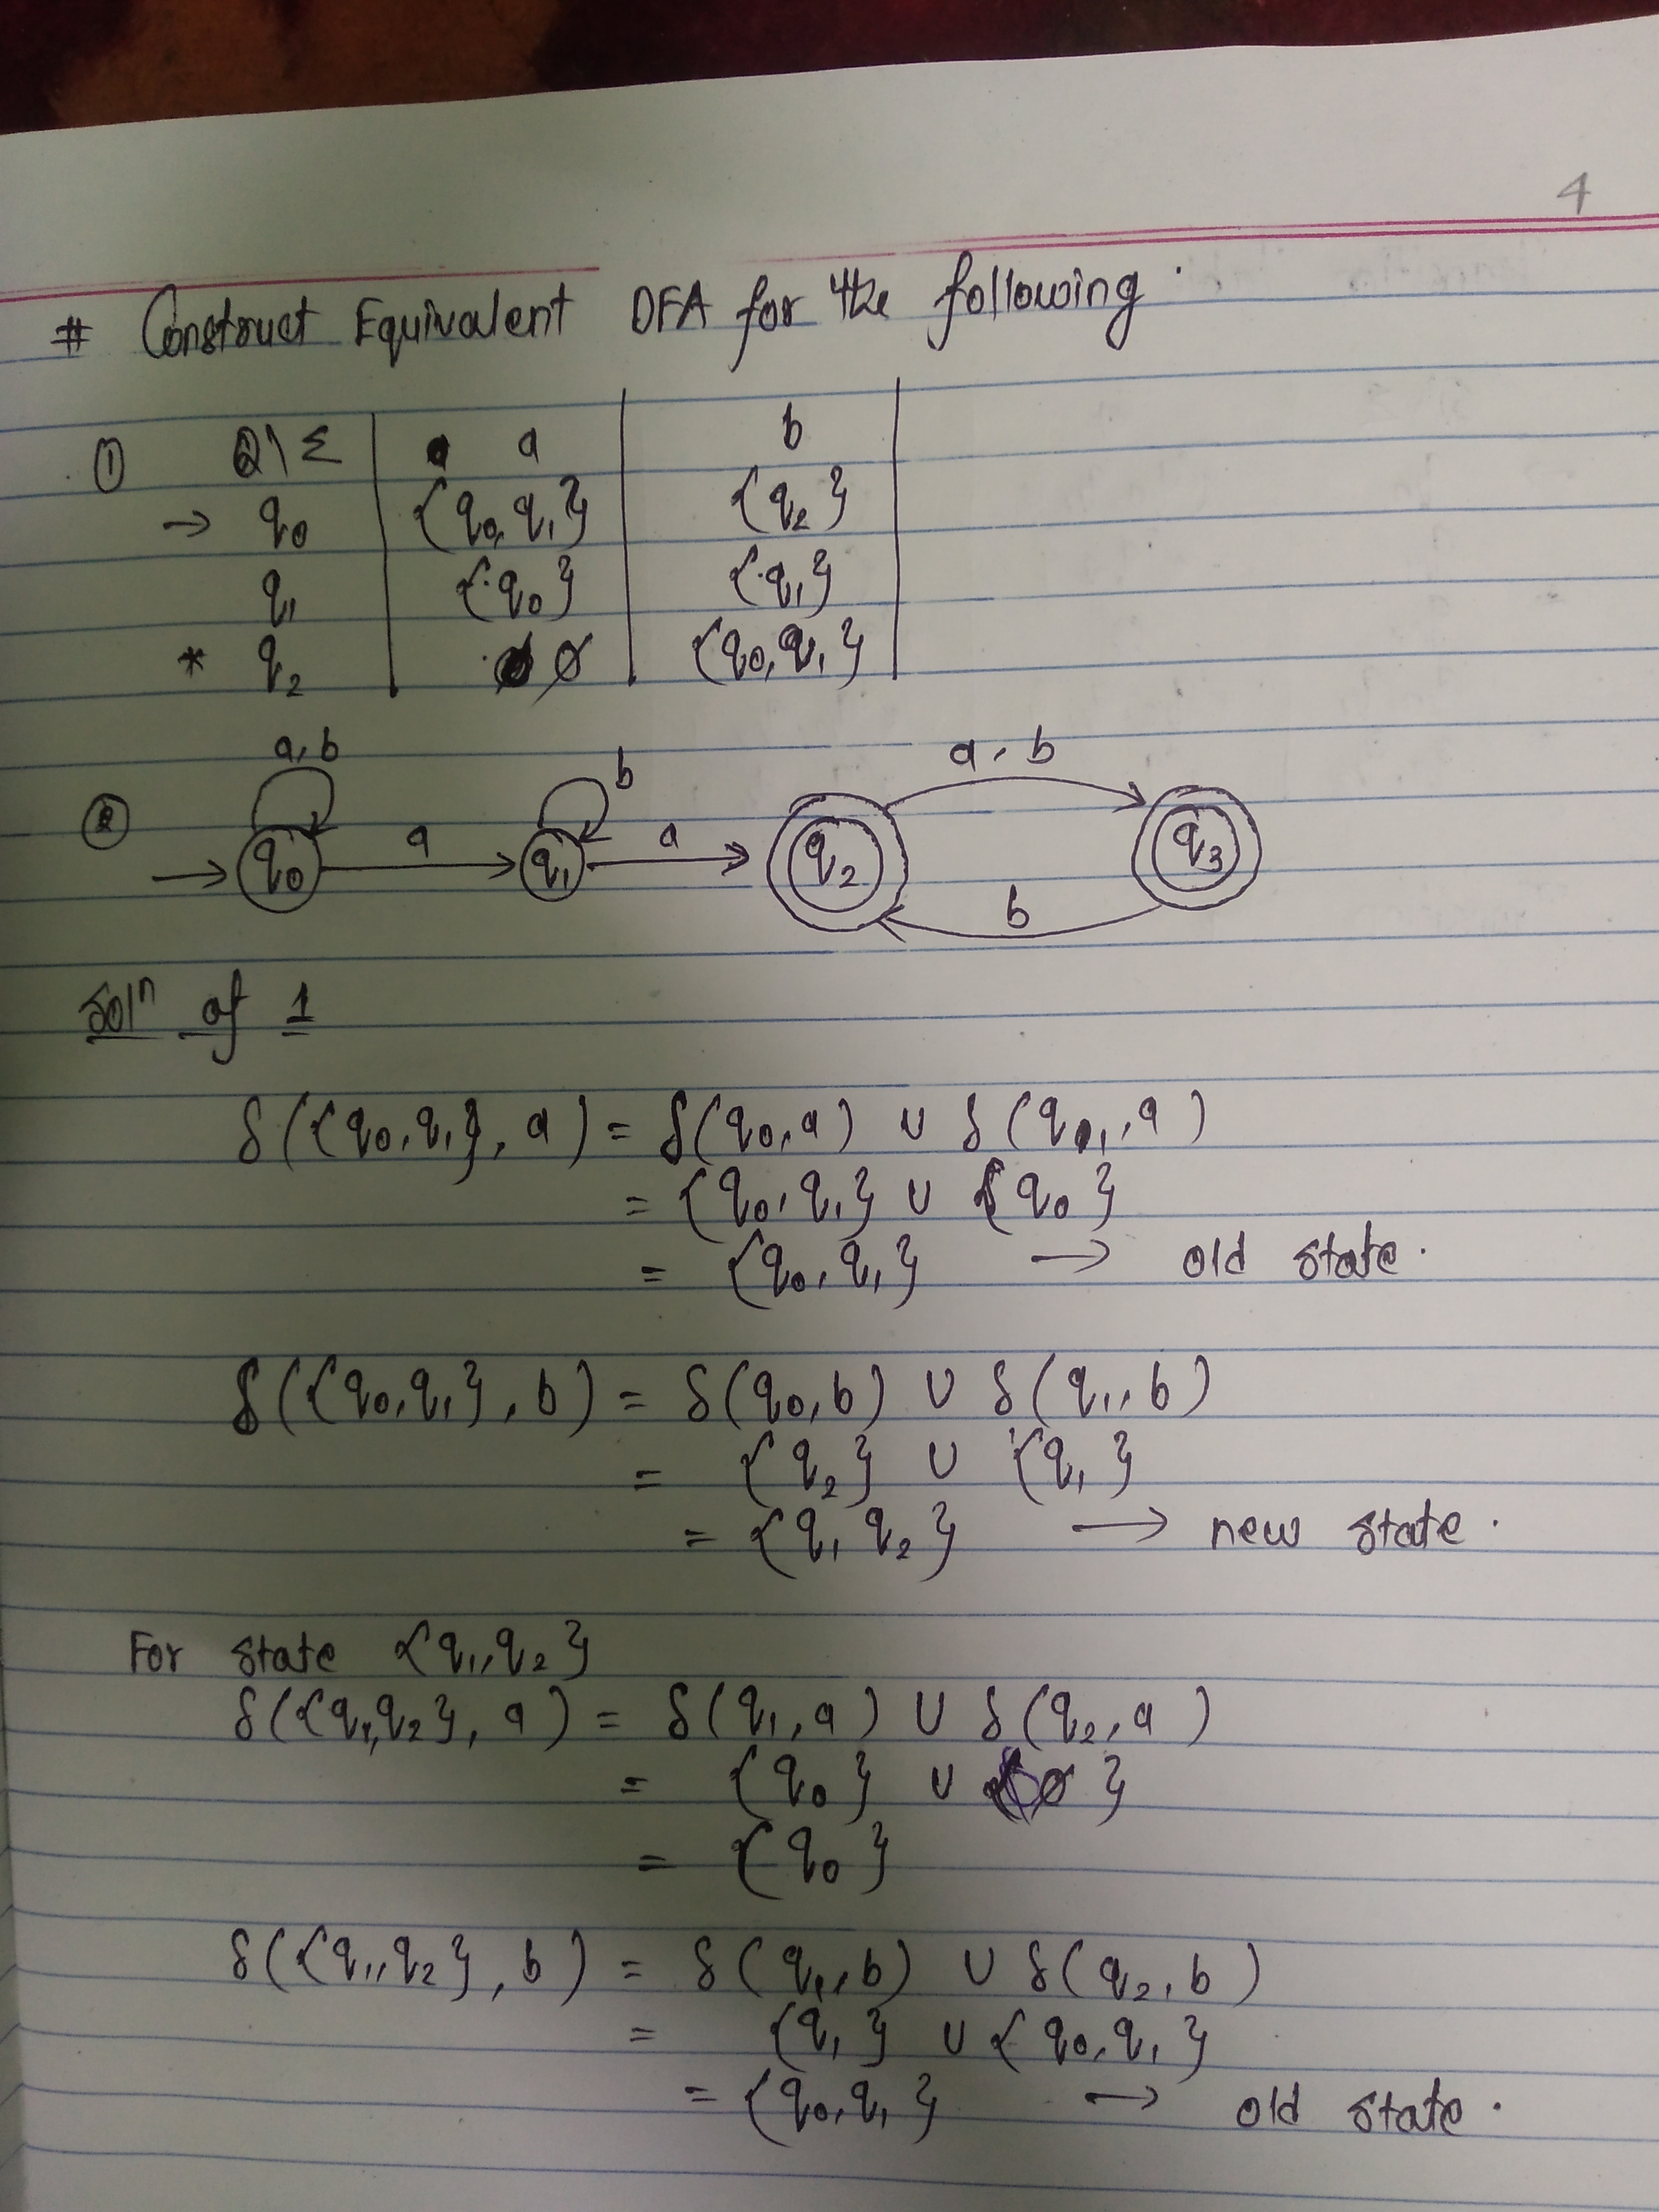 4
# Construct Equivalent DFA for the following.
① Q\Σ a b
→ q₀ {q₀, q₁} {q₂}
q₁ {q₀} {q₁}
* q₂ ∅ {q₀, q₁}
a, b b a, b
② q₀ a q₁ a q₂ q₃
b
Solⁿ of 1
δ({q₀, q₁}, a) = δ(q₀, a) ∪ δ(q₁, a)
= {q₀, q₁} ∪ {q₀}
= {q₀, q₁} → old state.
δ({q₀, q₁}, b) = δ(q₀, b) ∪ δ(q₁, b)
= {q₂} ∪ {q₁}
= {q₁ q₂} → new state.
For state {q₁, q₂}
δ({q₁, q₂}, a) = δ(q₁, a) ∪ δ(q₂, a)
= {q₀} ∪ {∅}
= {q₀}
δ({q₁, q₂}, b) = δ(q₁, b) ∪ δ(q₂, b)
= {q₁} ∪ {q₀, q₁}
= {q₀, q₁} → old state.